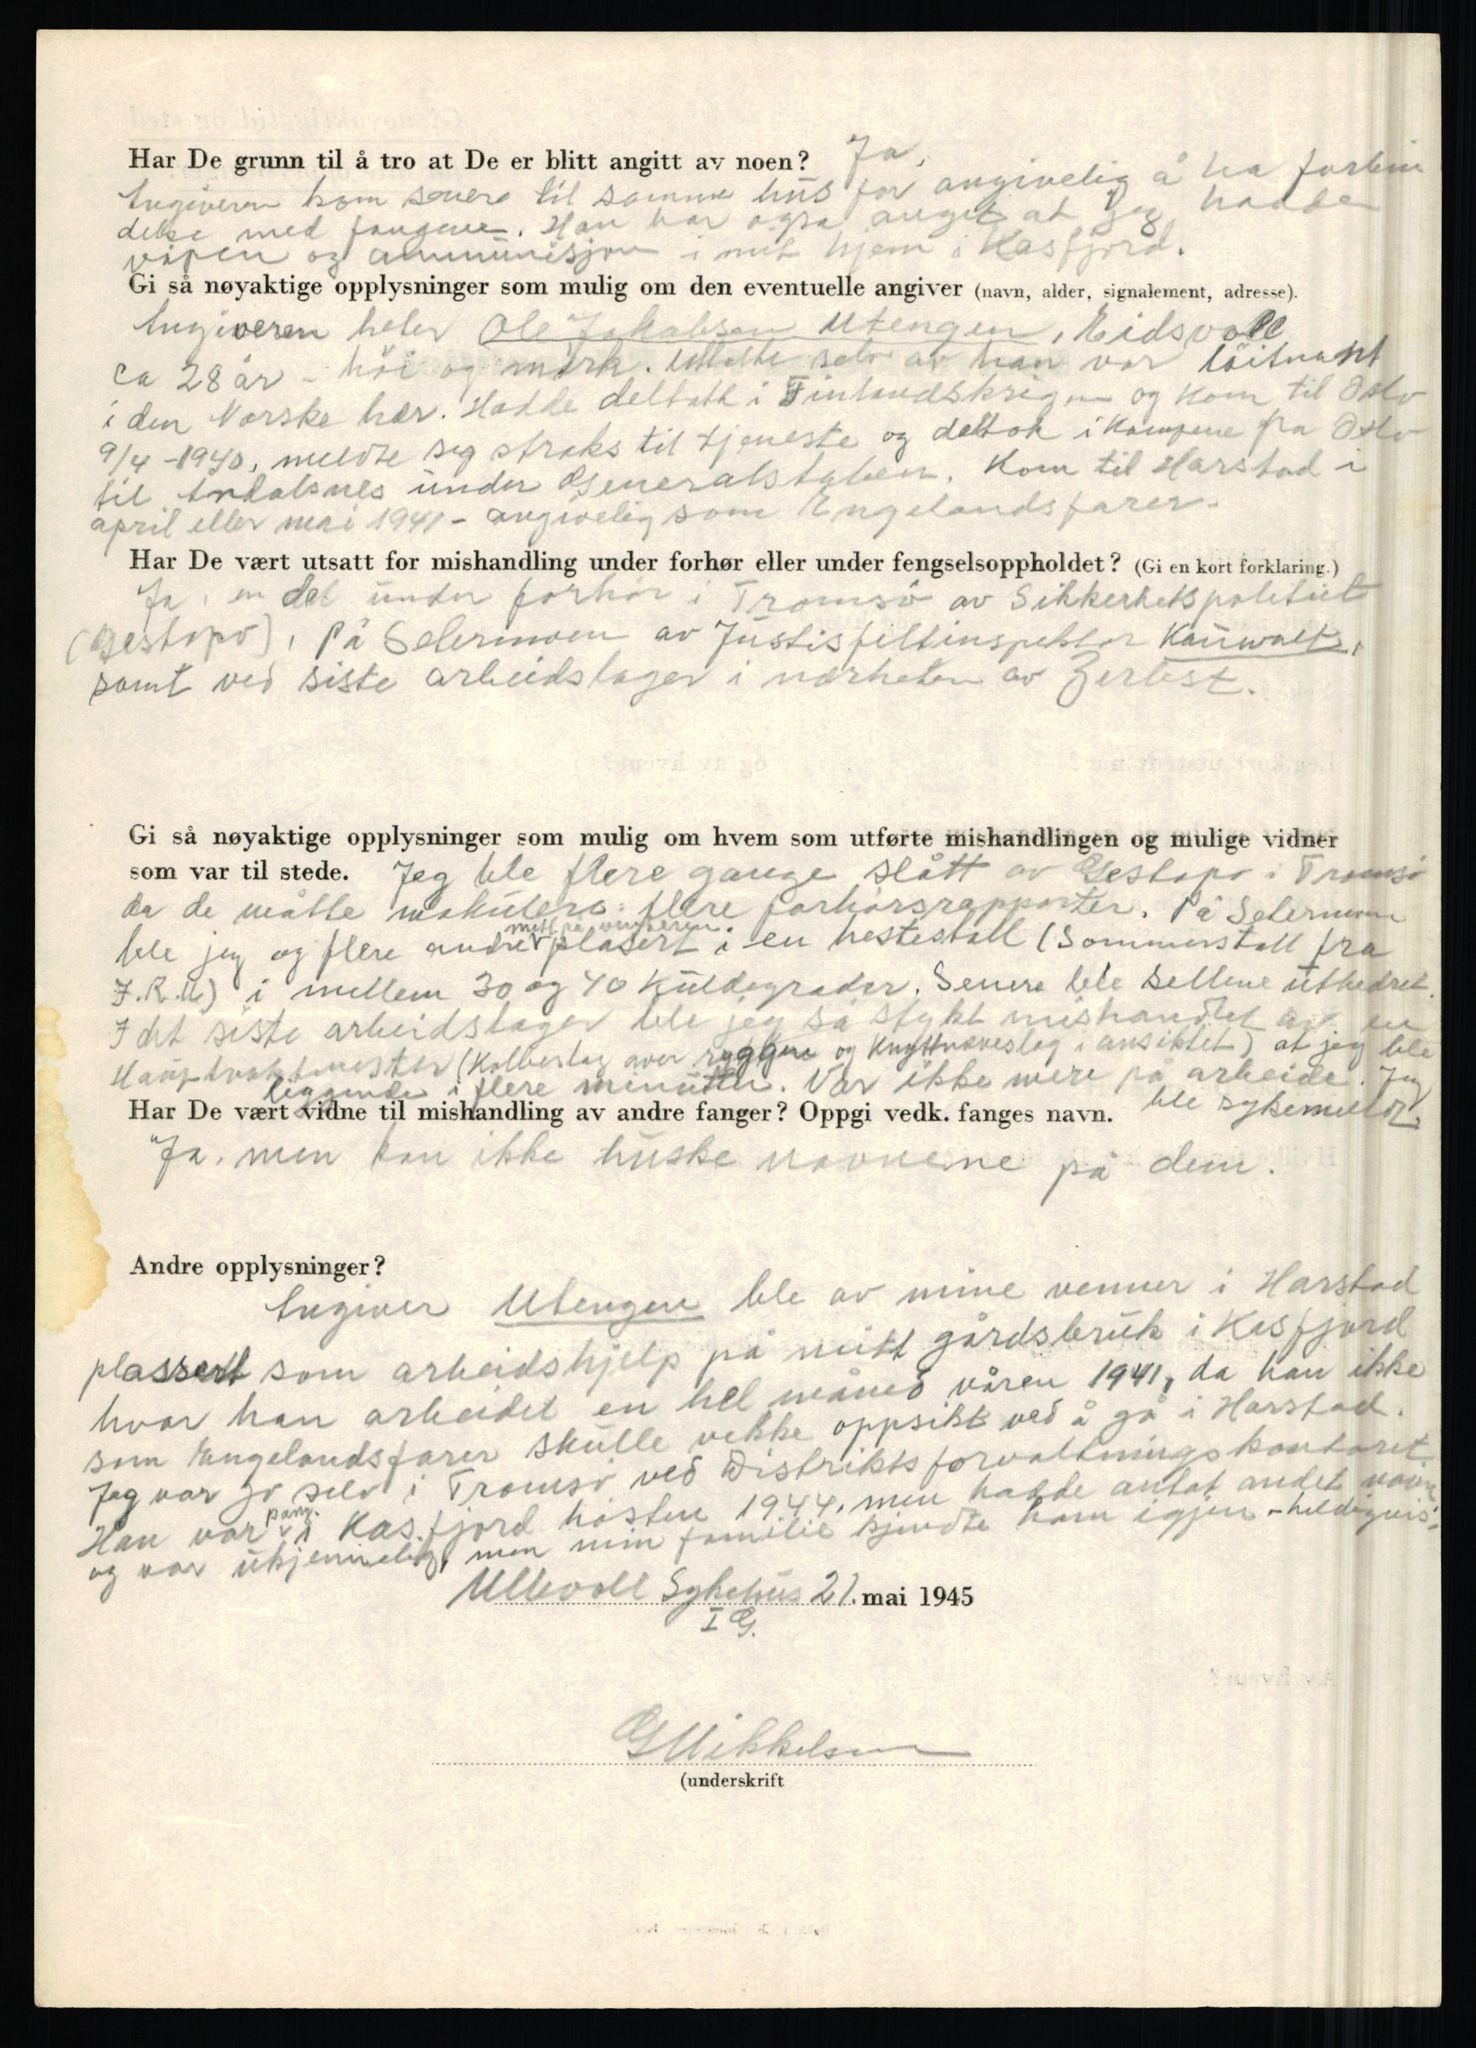 Har De grunn til å tro at De er blitt angitt av noen? Ja.
Angiveren kom senere til samme hus for angivelig å ha forbin
delse med fangene. Han har også anget at jeg hadde
våpen og ammunisjon i mit hjem i Kasfjord.
Gi så nøyaktige opplysninger som mulig om den eventuelle angiver (navn, alder, signalement, adresse).
Angiveren heter Ole Jakobsen Utengen, Eidsvoll
ca 28 år - høi og mørk. Utalte selv av han var løitnant
i den Norske hær. Hadde deltatt i Finlandskrigen og kom til Oslo
9/4-1940, meldte seg straks til tjeneste og deltok i kampene fra Oslo
til Andalsnes under Generalstaben. Kom til Harstad i
april eller mai 1941 - angivelig som Engelandsfarer.
Har De vært utsatt for mishandling under forhør eller under fengselsoppholdet? (Gi en kort forklaring.)
Ja, en del under forhør i Tromsø av Sikkerhetspolitiet
(Gestapo), På Setermoen av Justisfeltinspektør Kauwalts,
samt ved siste arbeidslager i nærheten av Zerbst.
Gi så nøyaktige opplysninger som mulig om hvem som utførte mishandlingen og mulige vidner
som var til stede. Jeg ble flere gange slått av Gestapo i Tromsø
da de måtte makulere flere forhørsrapporter. På Setermoen
ble jeg og flere andre midt på vinteren plasert i en hestestall (Sommerstall fra
I.R.16) i mellem 30 og 40 kuldegrader. Senere ble cellene utbedret.
I det siste arbeidslager ble jeg så stykt mishandlet av en
Hauptvaktmester (Kolbeslag over ryggen og knyttneveslag i ansiktet) at jeg ble
liggende i flere minutter. Var ikke mere på arbeide. Jeg
ble sykemeldt.
Har De vært vidne til mishandling av andre fanger? Oppgi vedk. fanges navn.
Ja, men kan ikke huske navnene på dem.
Andre opplysninger?
Angiver Utengen ble av mine venner i Harstad
plassert som arbeidshjelp på mitt gårdsbruk i Kasfjord
hvor han arbeidet en hel måned våren 1941, da han ikke
som Engelandsfarer skulle vekke oppsikt ved å gå i Harstad.
Jeg var jo selv i Tromsø ved Distriktsforvaltningskontoret
Han var i Kasfjord høsten 1944, men hadde antat andet navn
og var ukjennelig, men min familie kjendte ham igjen - heldigvis.
Ullevoll Sykehus 21. mai 1945
I G.
GMikkelsen
(underskrift